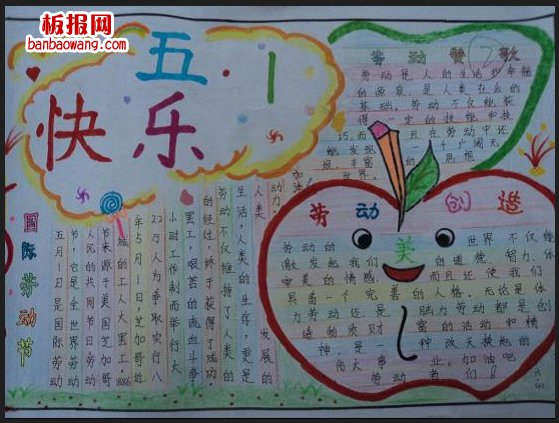 板报网
banbaowang.com
五1
快乐
国际劳动节
五月1日是国际劳动
节，它是全世界劳动
人民的共同节日劳动
节来源于美国芝加哥
城的工人大罢工，1886
年5月1日，芝加哥的
22万人为争取实行八
小时工作制而举行大
罢工，艰苦的流血斗争
的经过，终于获得了成功
劳动不仅维持了人类的
生活，人类的生存，更是
人类发展的
动力。
劳动赞歌
劳动是人的生活幸福
的源泉，是人类社会的
基础。劳动不仅能获
得一定的技能和技
巧，而且在劳动中还
能发现一个广阔无
很丰富的思想
世界。
加油！
劳动创造
美
劳动的世界不仅能
激发起我们的道德、智力、体
审美的情感，而且还使我们
具备一个完善的人格。无论是体
力劳动还是脑力劳动都是创
造物质财富的活动和精
神，是一种改天换地的
伟大事业。加油吧
劳动者们！